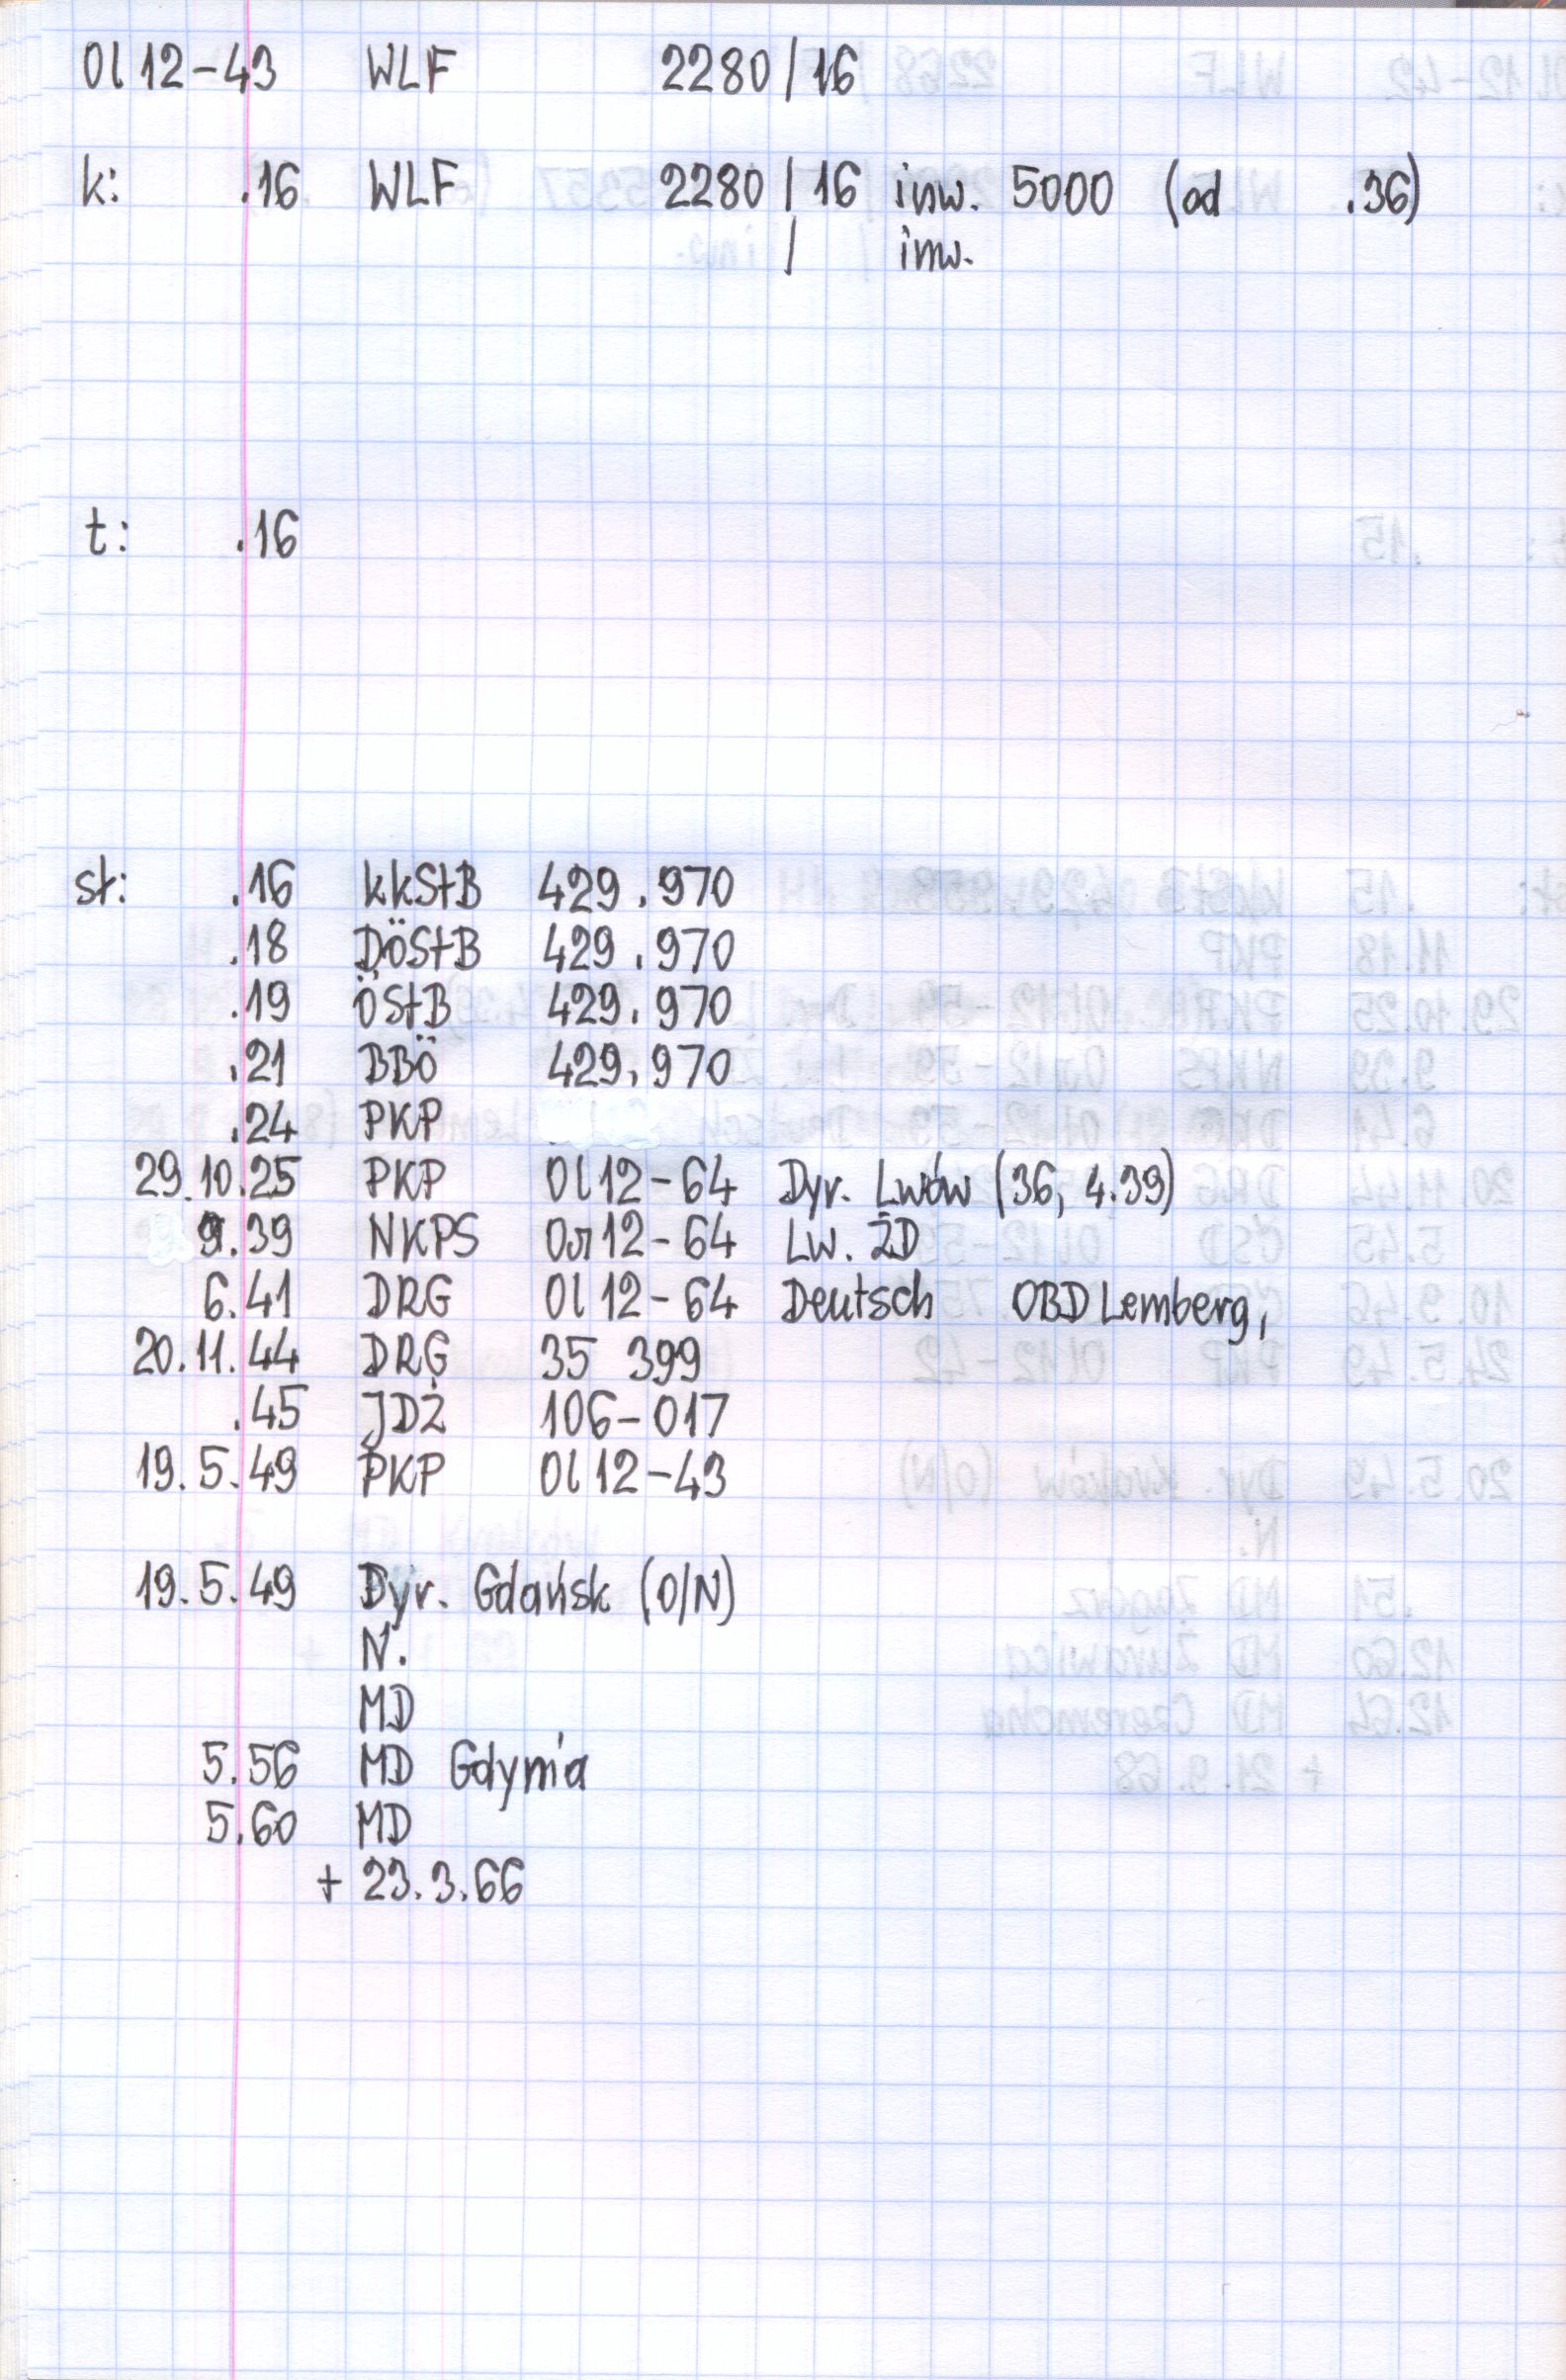 Ol 12-43 WLF 2280/16
k: .16 WLF 2280/16 inw. 5000 (od .36)
/ inw.
t: .16
st: .16 kkStB 429.970
.18 DöStB 429.970
.19 ÖStB 429.970
.21 BBÖ 429.970
.24 PKP
29.10.25 PKP Ol12-64 Dyr. Lwów (36, 4.39)
9.39 NKPS Ол12-64 Lw. ŻD
6.41 DRG Ol12-64 Deutsch OBD Lemberg,
20.11.44 DRG 35 399
.45 JDŻ 106-017
19.5.49 PKP Ol12-43
19.5.49 Dyr. Gdańsk (O/N)
N.
MD
5.56 MD Gdynia
5.60 MD
+ 23.3.66